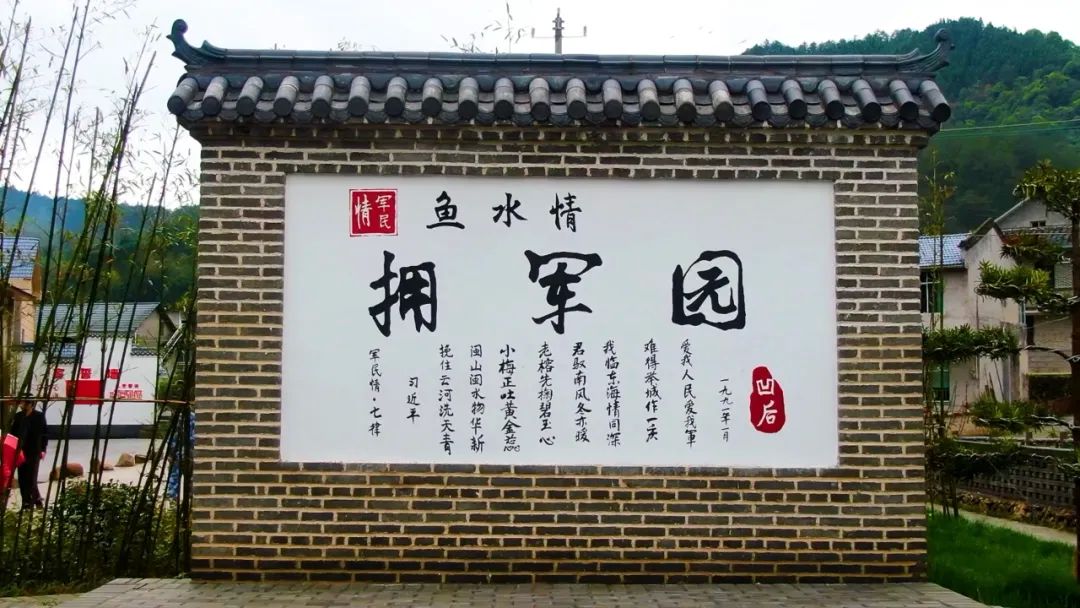 军民情
鱼水情
拥军园
军民情·七律
习近平
挽住云河洗天青
闽山闽水物华新
小梅正吐黄金蕊
老榕先掬碧玉心
君驭南风冬亦暖
我临东海情同深
难得举城作一庆
爱我人民爱我軍
一九九一年一月
凹后